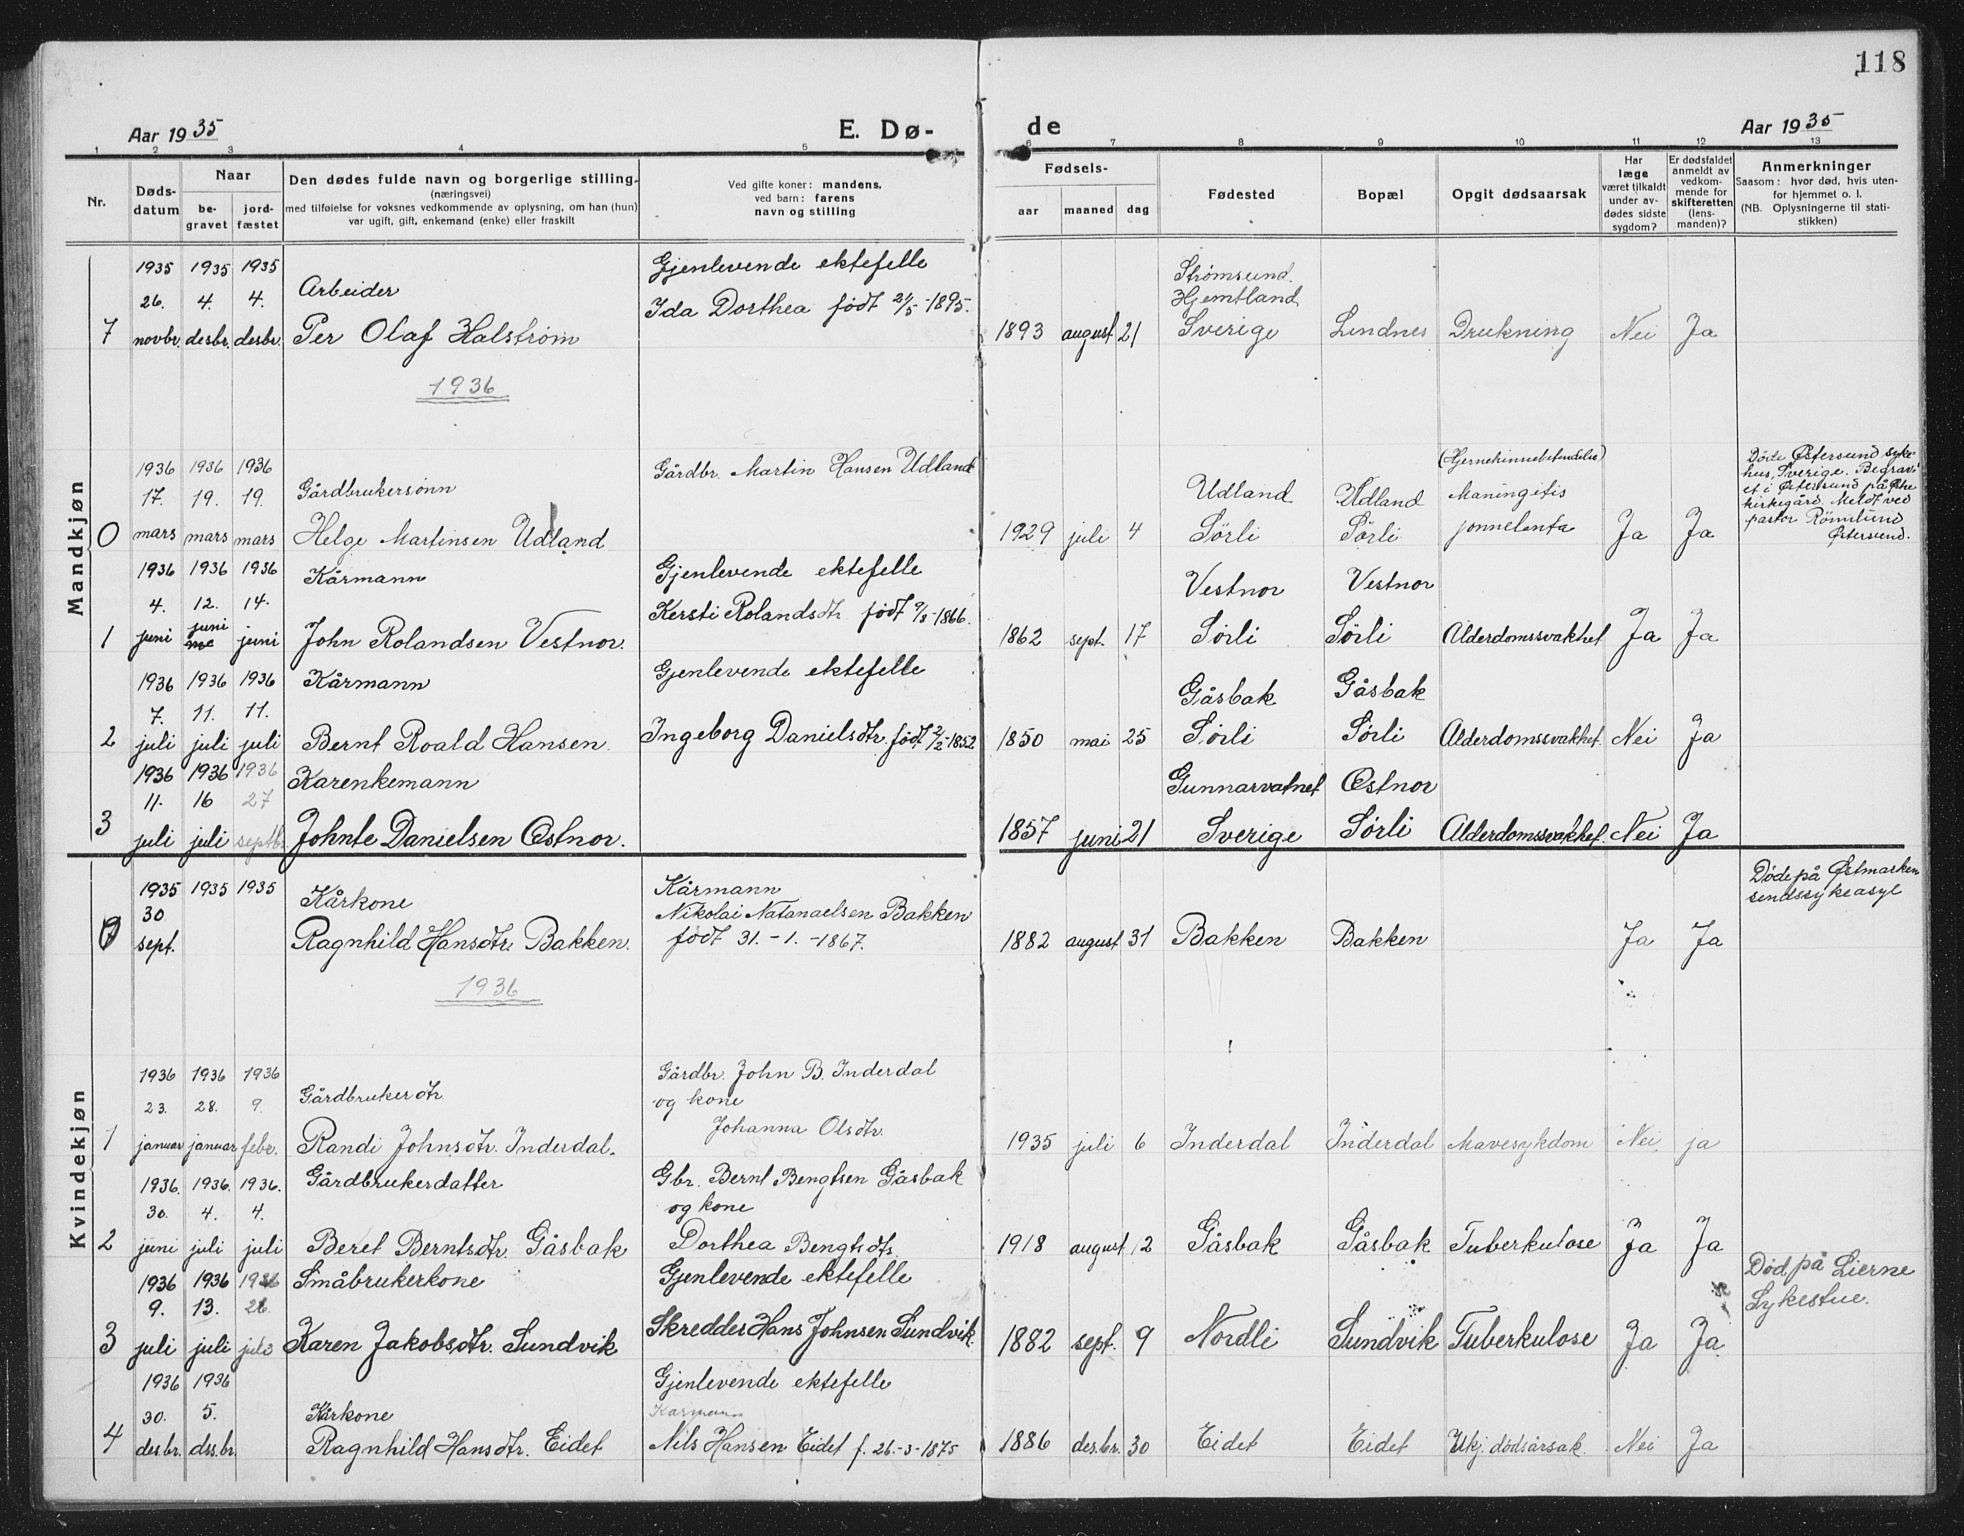 118
Aar 1935
E. Dø-
de
Aar 1935
1 2 3 4 5 6 7 8 9 10 11 12 13
Nr.
Døds-
datum
Naar
be-
gravet
jord-
fæstet
Den dødes fulde navn og borgerlige stilling
(næringsvei)
med tilføielse for voksnes vedkommende av oplysning, om han (hun)
var ugift, gift, enkemand (enke) eller fraskilt
Ved gifte koner: mandens,
ved barn: farens
navn og stilling
Fødsels-
aar maaned dag
Fødested
Bopæl
Opgit dødsaarsak
Har
læge
været tilkaldt
under av-
dødes sidste
sygdom?
Er dødsfaldet
anmeldt av
vedkom-
mende for
skifteretten
(lens-
manden)?
Anmerkninger
Saasom: hvor død, hvis uten-
for hjemmet o. l.
(NB. Oplysningerne til stati-
stikken)
Mandkjøn
1935 1935 1935 Gjenlevende ektefelle Strømsund
26. 4. 4. Arbeider Ida Dorthea født 21/5-1895. Hjemtland
7 novbr. desbr. desbr. Per Olaf Halstrøm 1893 august 21 Sverige Lindnes Drukning Nei Ja
1936
1936 1936 1936 Gårdbr. Martin Hansen Udland (Hjernehinnebetendelse) Døde Østersund syke-
hus, Sverige. Begrav-
17. 19. 19. Gårdbrukersønn Udland Udland Maningitis et i Østersund på
kirkegård. Meldt ved
0 mars mars mars Helge Martinsen Udland 1929 juli 4 Sørli Sørli Ja Ja pastor Römilund
Østersund.
1936 1936 1936 Kårmann Gjenlevende ektefelle Vestnor Vestnor
4. 12. 14. Kersti Rolandsdtr født 9/3-1866.
1 juni juni juni John Rolandsen Vestnor. 1862 sept. 17 Sørli Sørli Alderdomssvakhet Ja Ja
1936 1936 1936 Kårmann Gjenlevende ektefelle Gåsbak Gåsbak
7. 11. 11.
2 juli juli juli Bernt Roald Hansen. Ingeborg Danielsdtr. født 2/2-1852 1850 mai 25 Sørli Sørli Alderdomssvakhet. Nei Ja
1936 1936 1936 Karenkemann Gunnarvatnet Østnor
11. 16 27
3 juli juli septbr. Johnte Danielsen Østnor. 1857 juni 21 Sverige Sørli Alderdomssvakhet. Nei Ja
Kvindekjøn
1935 1935 1935 Kårkone Kårmann Døde på Østmarken
30 Nikolai Natanaelsen Bakken sendssykeasyl
sept. Ragnhild Hansdtr. Bakken. født 31.-1.-1867. 1882 august 31 Bakken Bakken Ja Ja
1936
1936 1936 1936 Gårdbr. John B. Inderdal
23. 28. 9. Gårdbrukerdtr og kone
Johanna Olsdtr.
1 januar januar febr. Randi Johnsdtr. Inderdal. 1935 juli 6 Inderdal Inderdal Mavesykdom Nei ja
1936. 1936. 1936. Gårdbrukerdatter Gbr. Bernt Bengtsen Gåsbak
30. 4. 4. og kone
2 juni juli juli Beret Berntsdtr. Gåsbak Dorthea Bengtsdts. 1918 august 12 Gåsbak Gåsbak Tuberkulose Ja Ja
1936 1936 1936 Småbrukerkone Gjenlevende ektefelle Død på Lierne
9. 13. 26. Sykestue.
3 juli juli juli Karen Jakobsdtr. Sundvik Skredder Hans Johnsen Sundvik 1882 sept. 9 Nordli Sundvik Tuberkulose Ja Ja
1936 1936 Gjenlevende ektefelle
30. 5. Kårkone Karmann
4 des.br. dss.br Ragnhild Hansdtr. Eidet Nils Hansen Eidet f. 26.-3-1875 1886 des.br. 30 Eidet Eidet Ukj. dødsårsak. Nei Ja